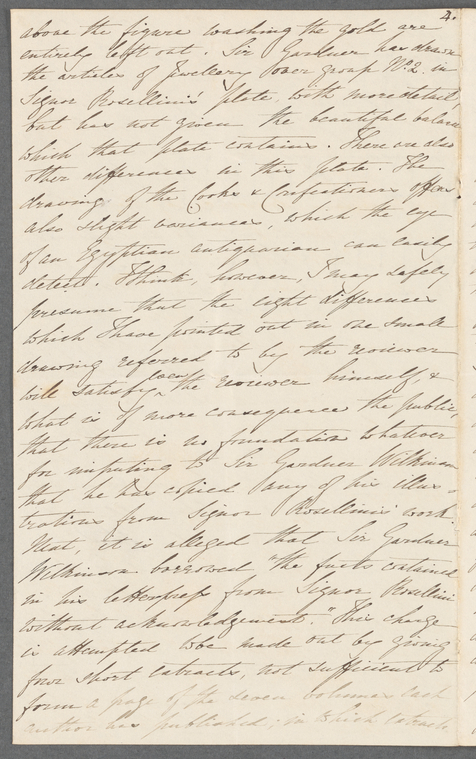 4.
above the figure washing the gold are
entirely left out. Sir Gardner has drawn
the articles of Jewellery over group No. 2, in
Signor Rosellini's plate, with more detail,
but has not given the beautiful balance
which that plate contains. There are also
other differences in this plate. The
drawing of the Cooks & Confectioners offers
also slight variances, which the eye
of an Egyptian antiquarian can easily
detect. I think, however, I may safely
presume that the eight differences
which I have pointed out in one small
drawing referred to by the reviewer
will satisfy the reviewer himself, &
what is of more consequence the public,
that there is no foundation whatever
for imputing to Sir Gardner Wilkinson
that he has copied any of his illus-
trations from Signor Rosellini's work.
Next, it is alleged that Sir Gardner
Wilkinson borrowed "the facts contained
in his letterpress from Signor Rosellini
without acknowledgement." This charge
is attempted to be made out by giving
four short extracts, not sufficient to
form a page of the seven volumes each
author has published; in which extracts